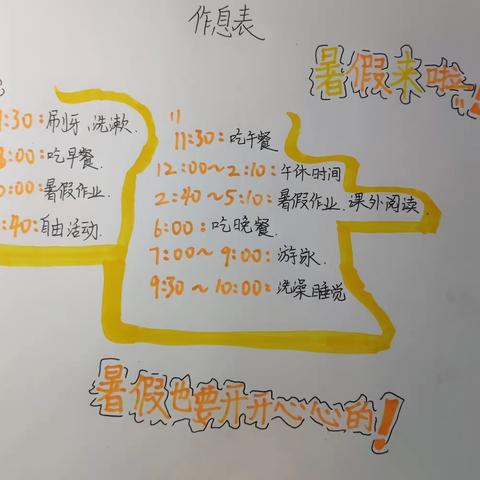 作息表
暑假来啦!
:30:刷牙、洗漱.
:00:吃早餐.
:00:暑假作业.
:40:自由活动.
11:30:吃午餐
12:00～2:10:午休时间
2:40～5:10:暑假作业、课外阅读
6:00:吃晚餐.
7:00～9:00:游泳.
9:30～10:00:洗澡睡觉
暑假也要开开心心的!